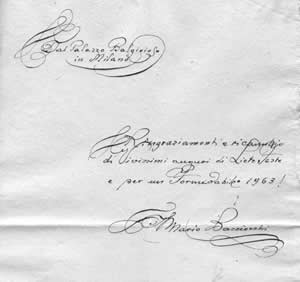 Dal Palazzo Belgioioso
in Milano
Ringraziamenti e ricambio
di vivissimi auguri di Liete feste
e per un Formidabile 1963!
Mario